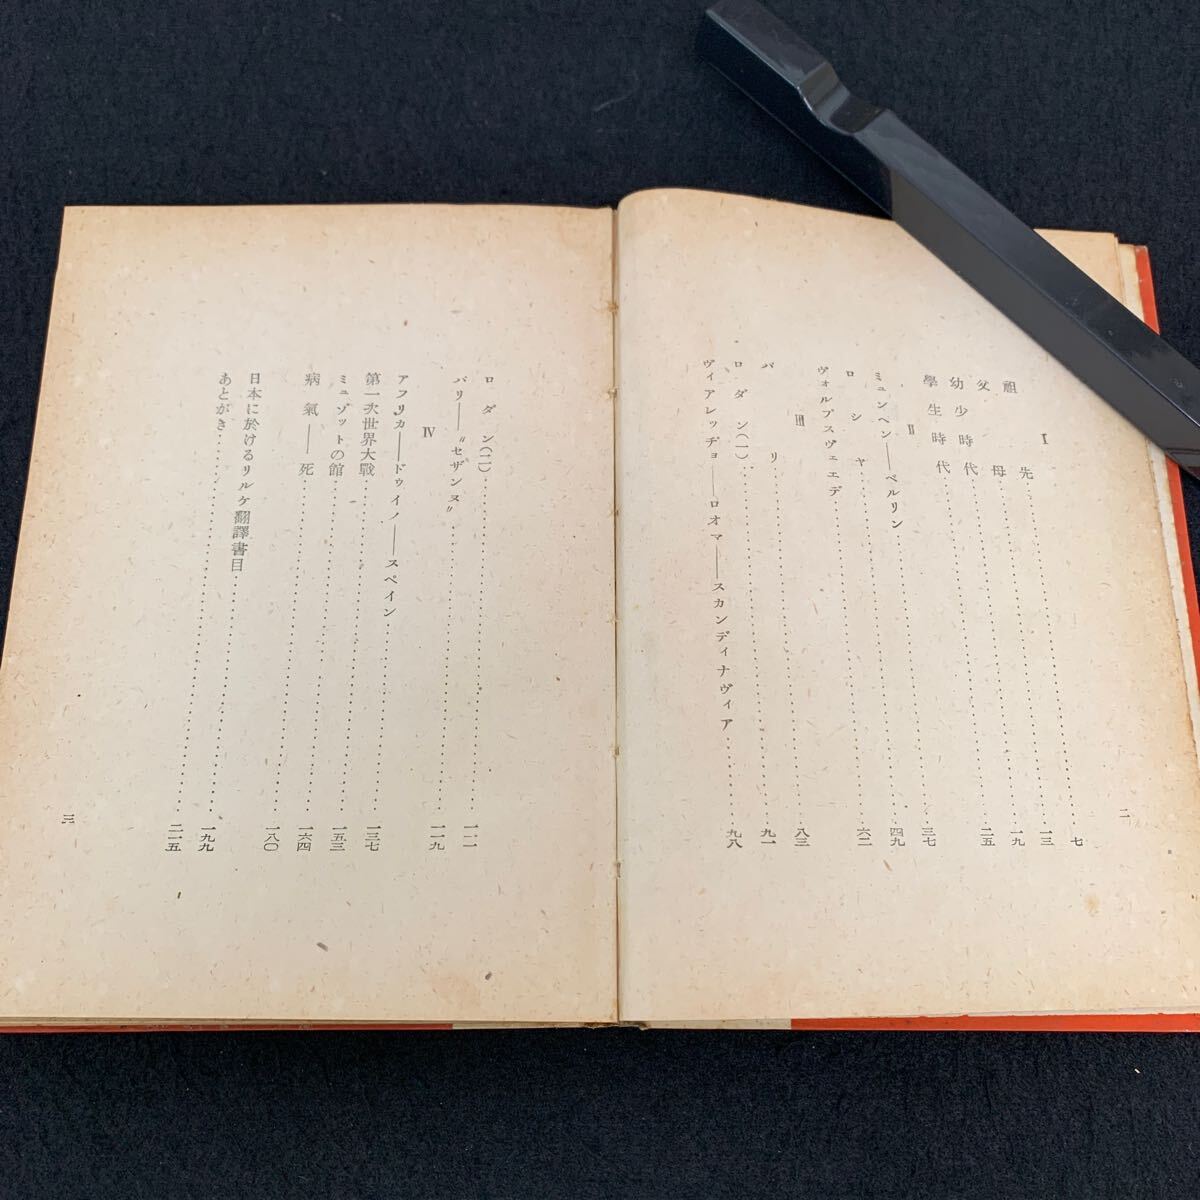 二
Ⅰ
祖先……七
父母……一三
幼少時代……一九
學生時代……二五
Ⅱ
ミュンヘン――ベルリン……三七
ロシヤ……四九
ヴォルプスヴェエデ……六二
Ⅲ
パリ……八三
ロダン(一)……九一
ヴィアレッヂョ――ロオマ――スカンディナヴィア……九八
ロダン(二)……一一一
パリ――〝セザンヌ〟……一一九
Ⅳ
アフリカ――ドゥイノ――スペイン……一三七
第一次世界大戰……一五三
ミュゾットの館……一六四
病氣――死……一八〇
日本に於けるリルケ翻譯書目……一九九
あとがき……二一五
三